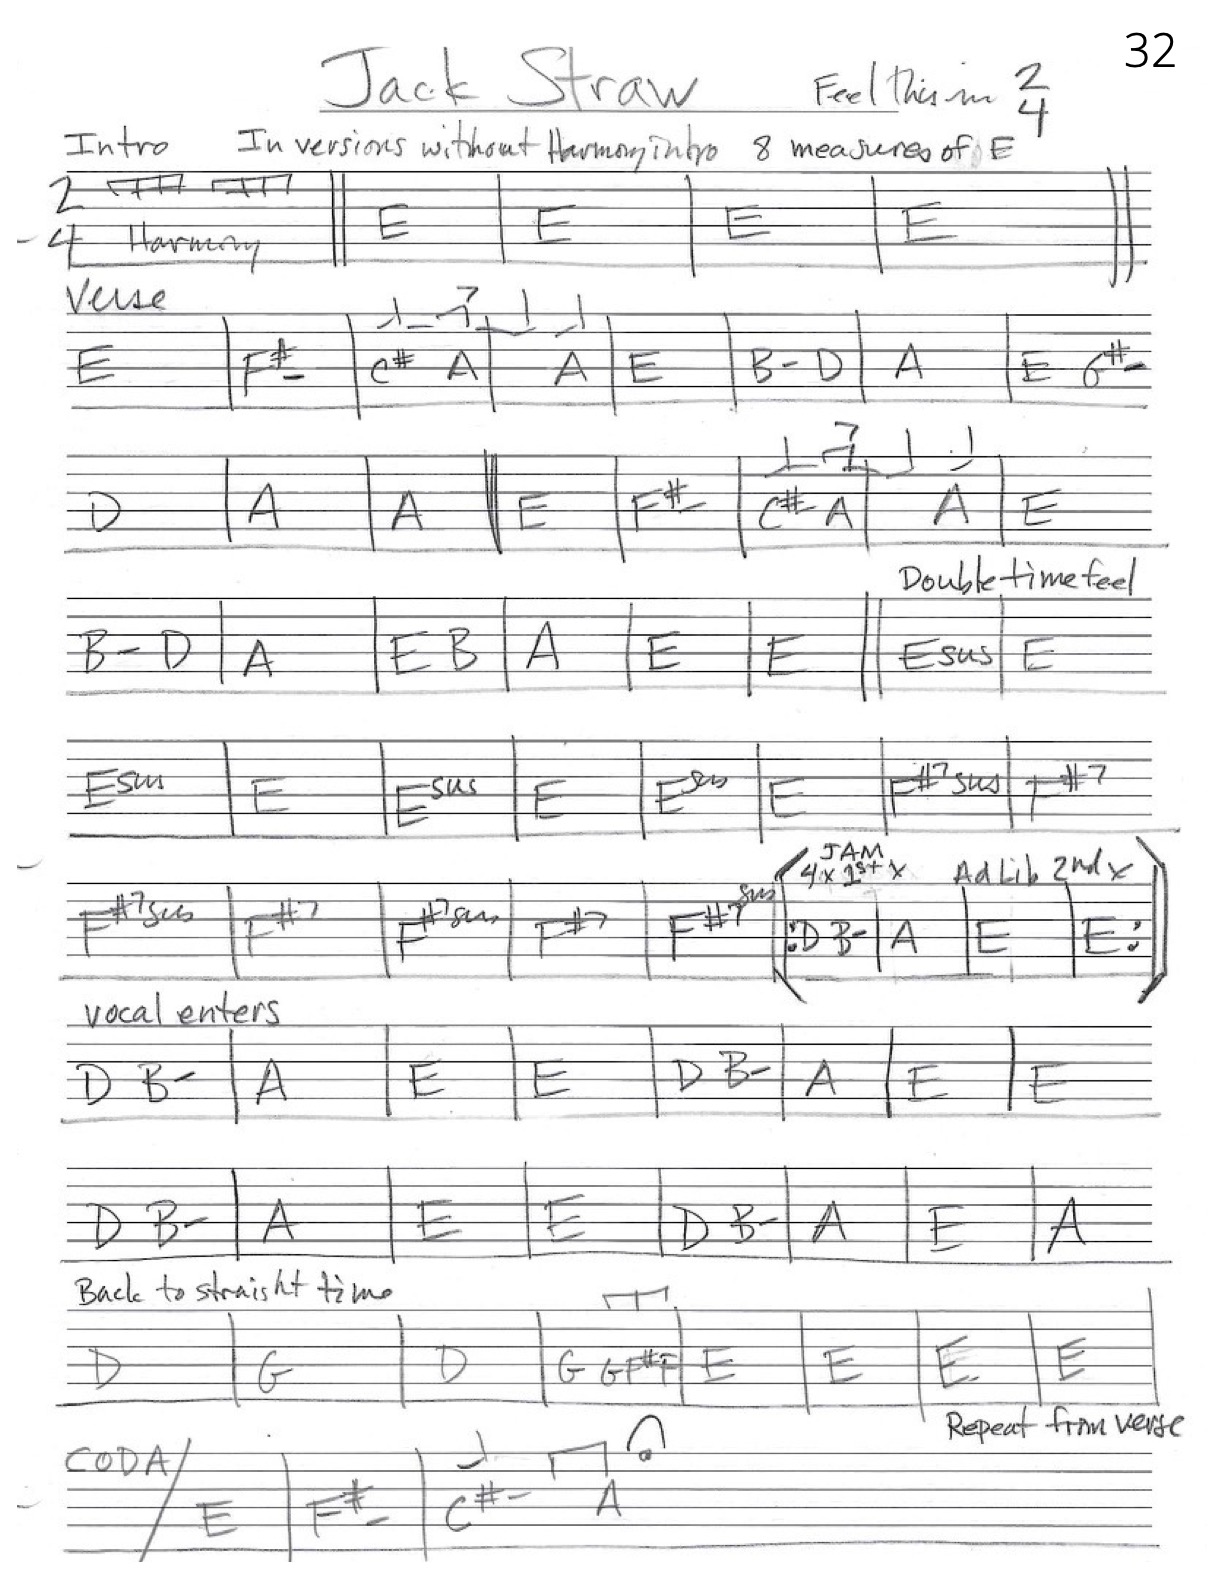 32
Jack Straw Feel this in 2/4
Intro In versions without Harmony intro 8 measures of E
2/4 Harmony || E | E | E | E ||
Verse
E | F#- | C# A | A | E | B- D | A | E G#-
D | A | A || E | F#- | C# A | A | E
Double time feel
B- D | A | E B | A | E | E || Esus | E
Esus | E | Esus | E | Esus | E | F#7sus | F#7
JAM
4x 1st x Ad Lib 2nd x
F#7sus | F#7 | F#7sus | F#7 | F#7sus |: D B- | A | E | E :|
vocal enters
D B- | A | E | E | D B- | A | E | E
D B- | A | E | E | D B- | A | E | A
Back to straight time
D | G | D | G G F# F | E | E | E | E |
Repeat from verse
CODA / E | F#- | C#- A